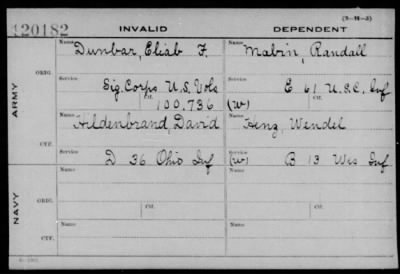 (3-H-3)
120182 INVALID DEPENDENT
ARMY
ORIG.
Name Dunbar, Eliab F. Name Mabin, Randall
Service Sig. Corps U.S. Vols Service E 61 U.S.C. Inf
Ctf. 100,736 Ctf. (W)
CTF.
Name Hildenbrand, David Name Henz, Wendel
Service D 36 Ohio Inf Service (W) B 13 Wis Inf
NAVY
ORIG.
Name Name
Service Ctf. Service Ctf.
CTF.
Name Name
Service Service